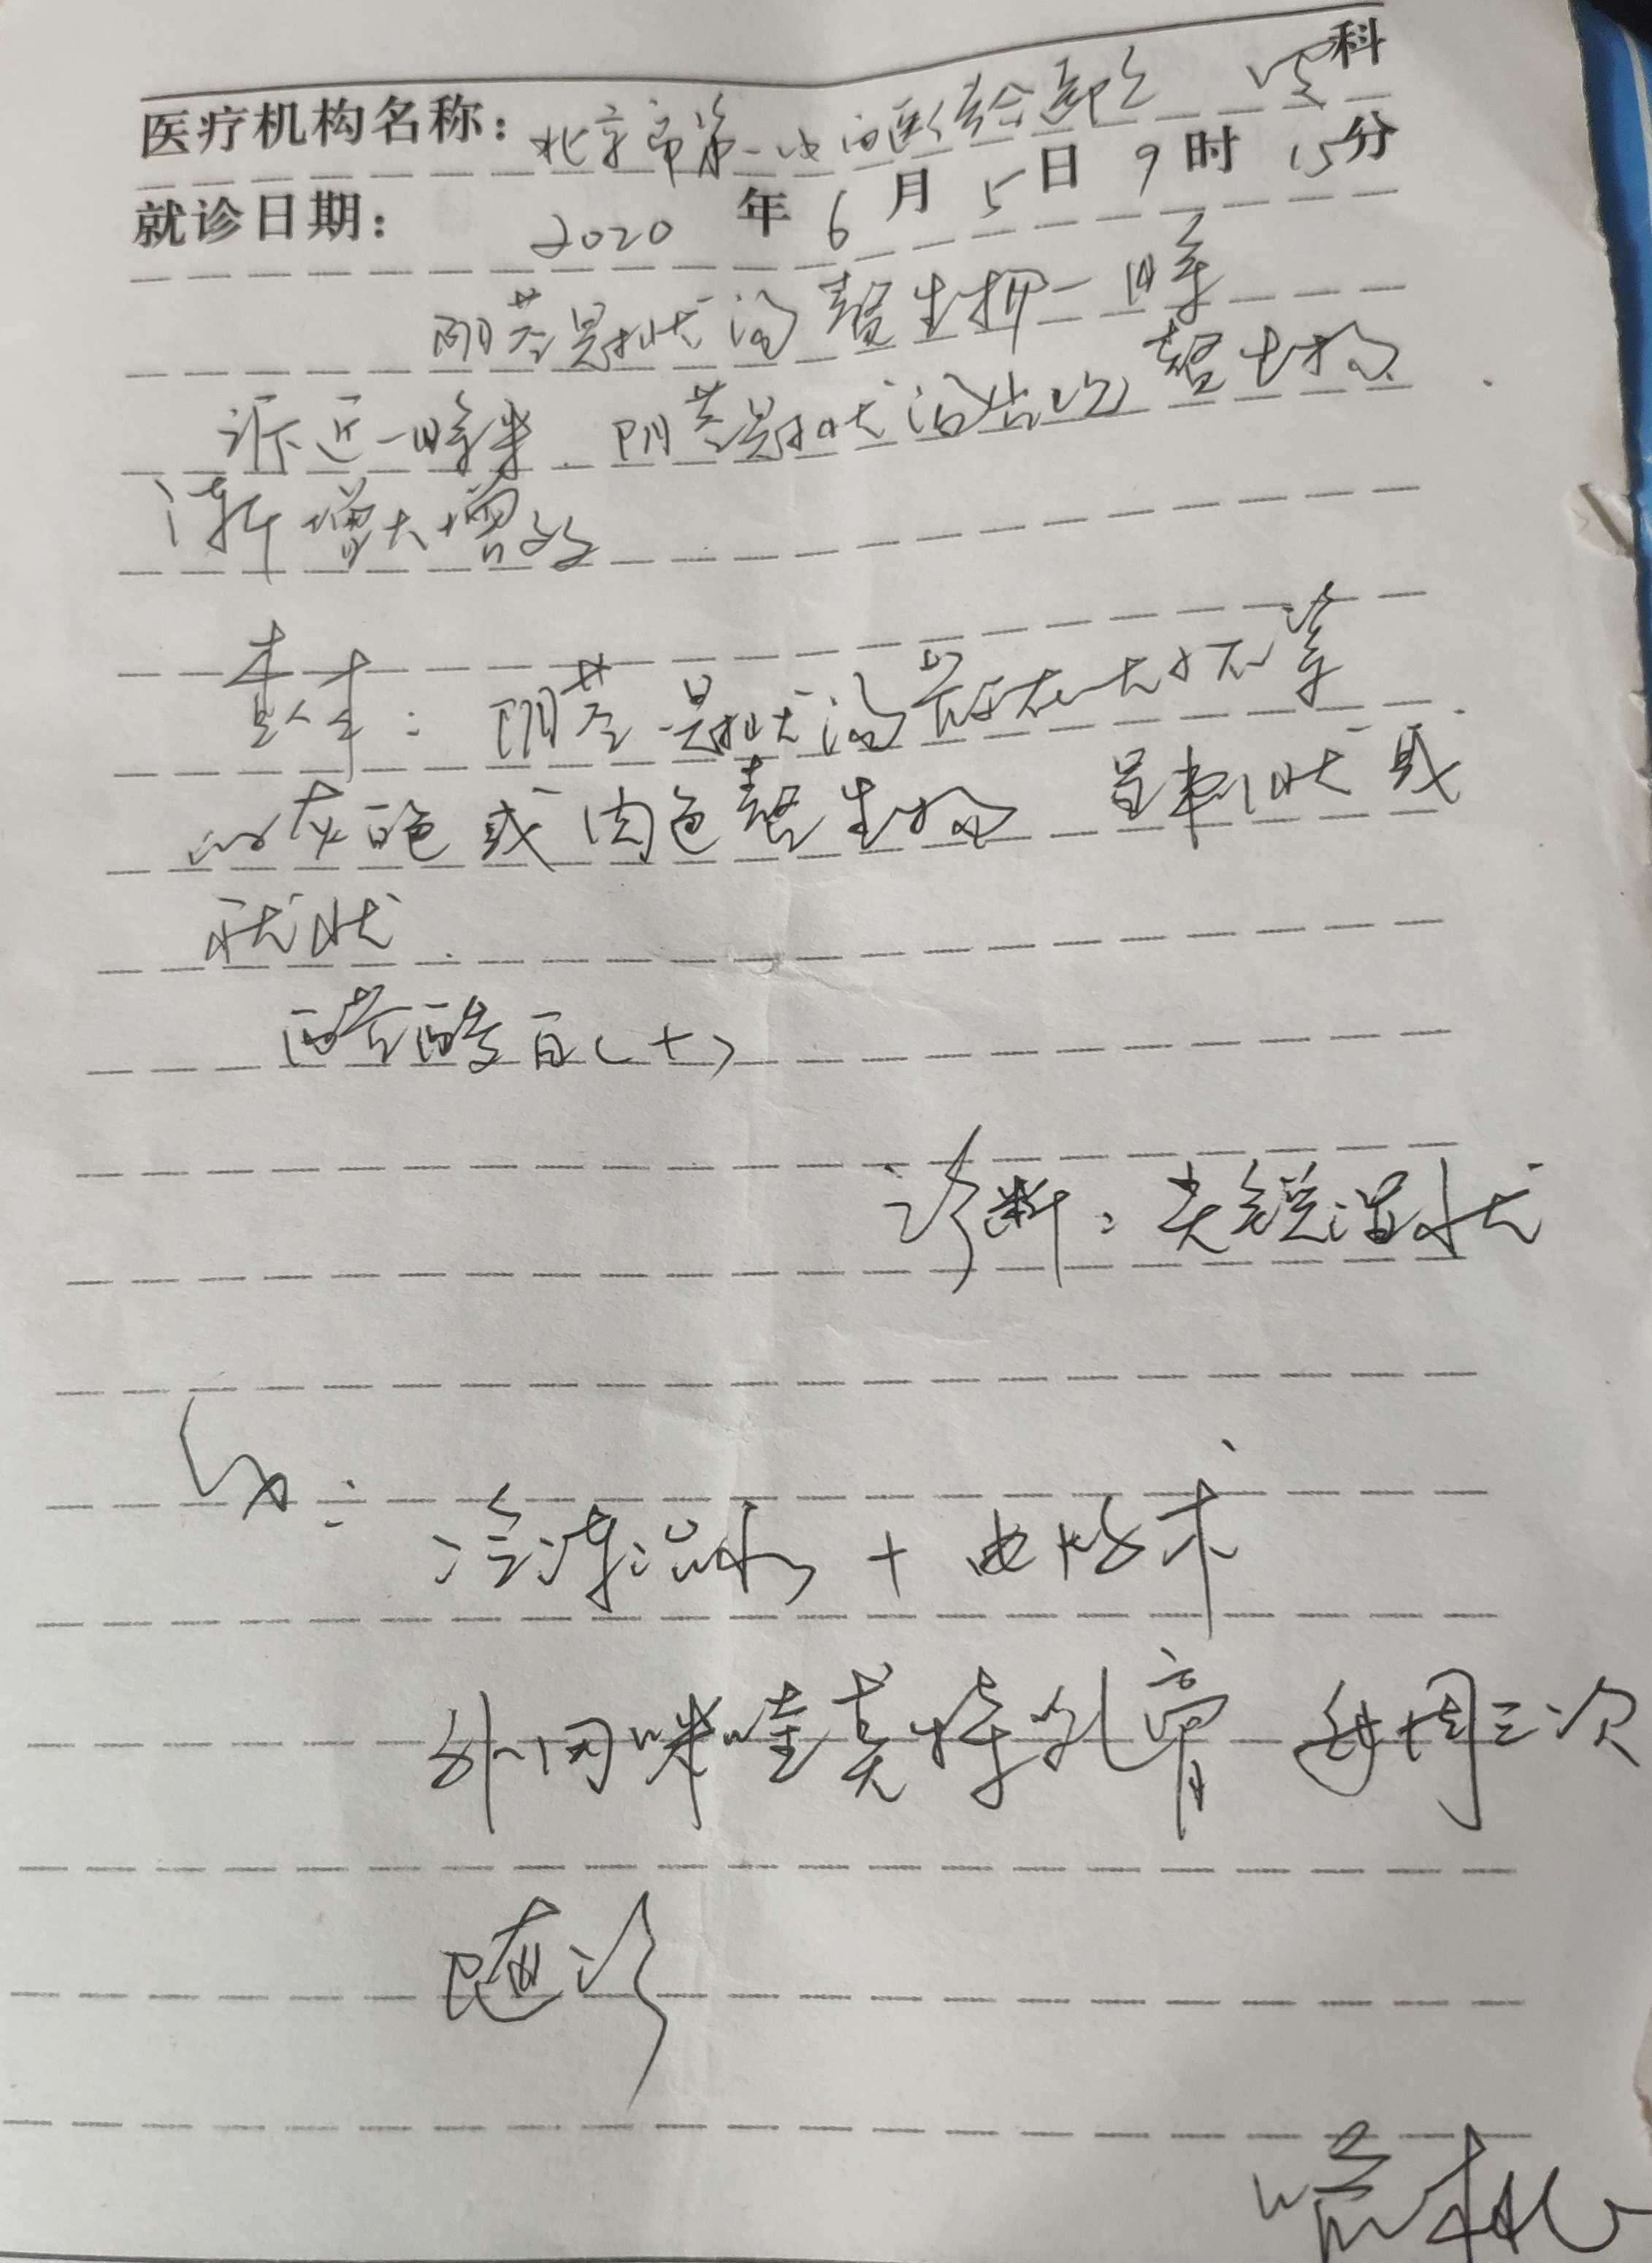 医疗机构名称：北京市第一中西医结合 科
就诊日期： 2020 年 6 月 5 日 9 时 15 分
阴茎冠状沟赘生物一月余
诉近一月余来，阴茎冠状沟出现赘生物，
渐增大增多
查体：阴茎冠状沟散在大小不等
的灰白色或肉色赘生物 呈刺状或
疣状.
醋酸白（+）
诊断：尖锐湿疣
冷冻治疗 + 电灼术
外用咪喹莫特乳膏 每周三次
随诊